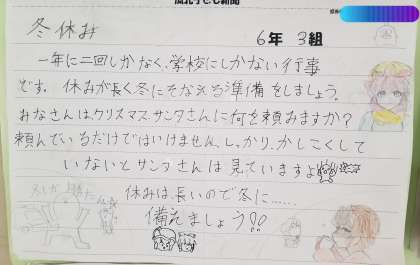 冬休み
6年 3組
一年に二回しかなく、学校にしかない行事
です。休みが長く冬にそなえる準備をしましょう。
みなさんは、クリスマス、サンタさんに何を頼みますか？
頼んでいるだけではいけません、しっかり、かしこくして
いないとサンタさんは見ていますよ
休みは、長いので冬に……
備えましょう!!